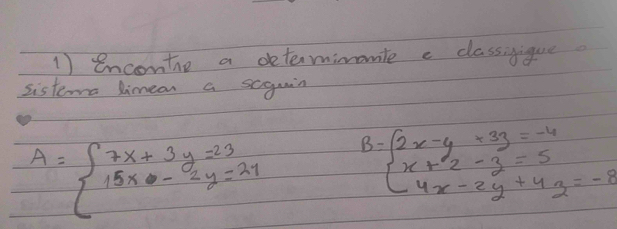 1) Encontre a determinante e classifique o
sistema linear a seguir
A = { 7x + 3y = 23
15x - 2y = 21
B = { 2x - y + 3z = -4
x + 2 - z = 5
4x - 2y + 4z = -8